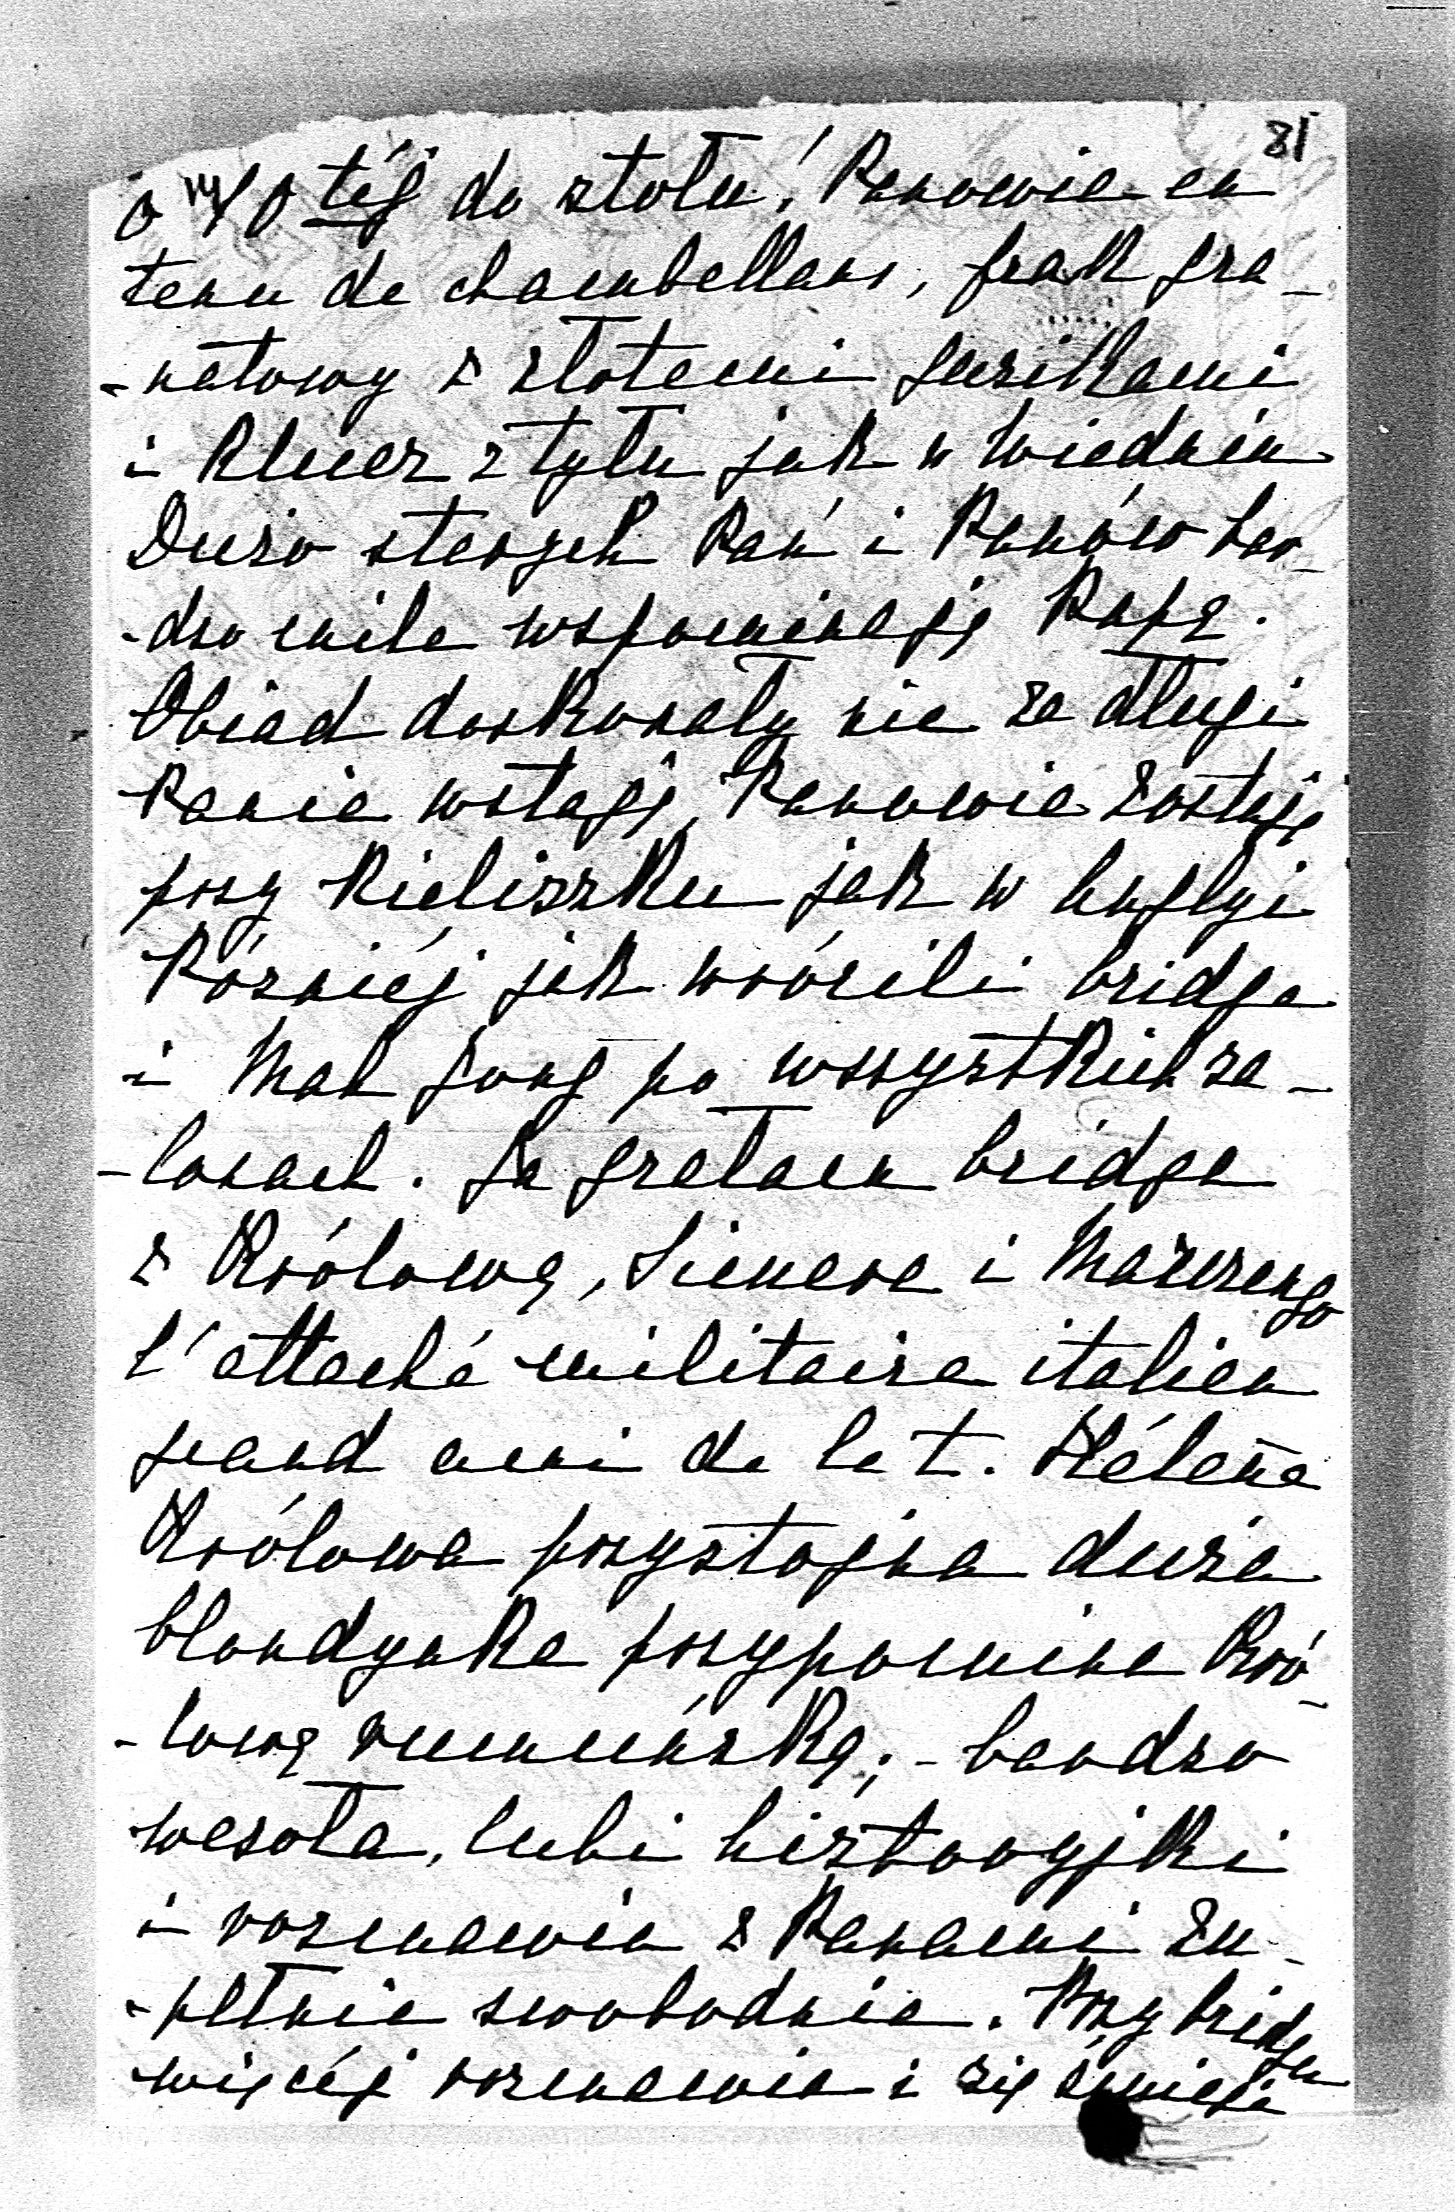 81
o 10 téj do stołu! Panowie en
tenu de chambellans, frak gra-
-natowy z złotemi guzikami
i klucz z tyłu jak w Wiedniu
Dużo starych Pań i Panów bar-
-dzo mile wspominają Papę.
Obiad doskonały nie za długi
Panie wstają, Panowie zostają
przy kieliszku jak w Anglyi
Późniéj jak wrócili bridge
i Mah Jong po wszystkich sa-
-lonach. Ja grałam bridga
z Królową, Simera i Marsengo
l'attaché militaire italien
grand ami de la t. Hélène
Królowa przystojna duża
blondynka przypomina Kró-
-lową rumuńską; - bardzo
wesoła, lubi historyjki
i rozmawia z Panami zu-
-pełnie swobodnie. Przy bridgu
więcéj rozmawia i się śmieje